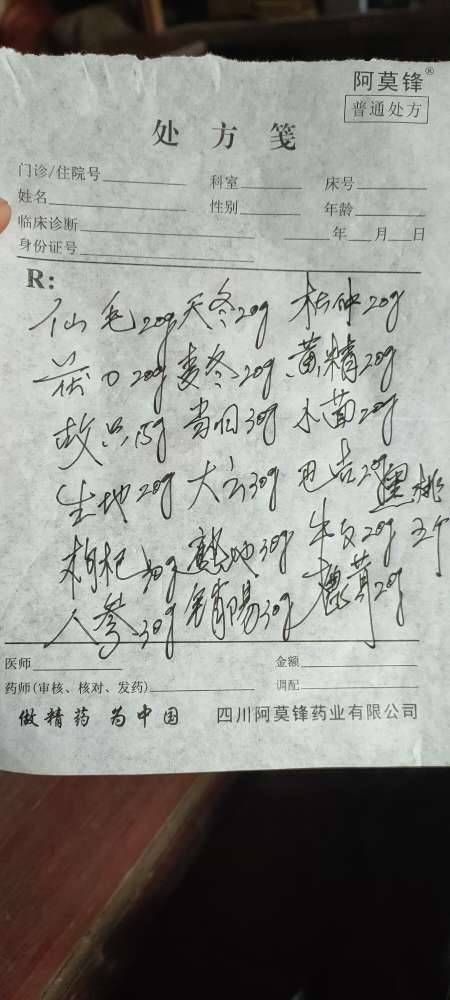 阿莫锋®
普通处方
处方笺
门诊/住院号 科室 床号
姓名 性别 年龄
临床诊断 年 月 日
身份证号
R:
仙毛20g 天冬20g 杜仲20g
茯0 20g 麦冬20g 黄精20g
15g 当归30g 20g
生地20g 大云30g 20g 黑桃
枸杞30g 30g 牛夕20g 五个
人参30g 30g 20g
医师 金额
药师(审核、核对、发药) 调配
做精药 为中国 四川阿莫锋药业有限公司